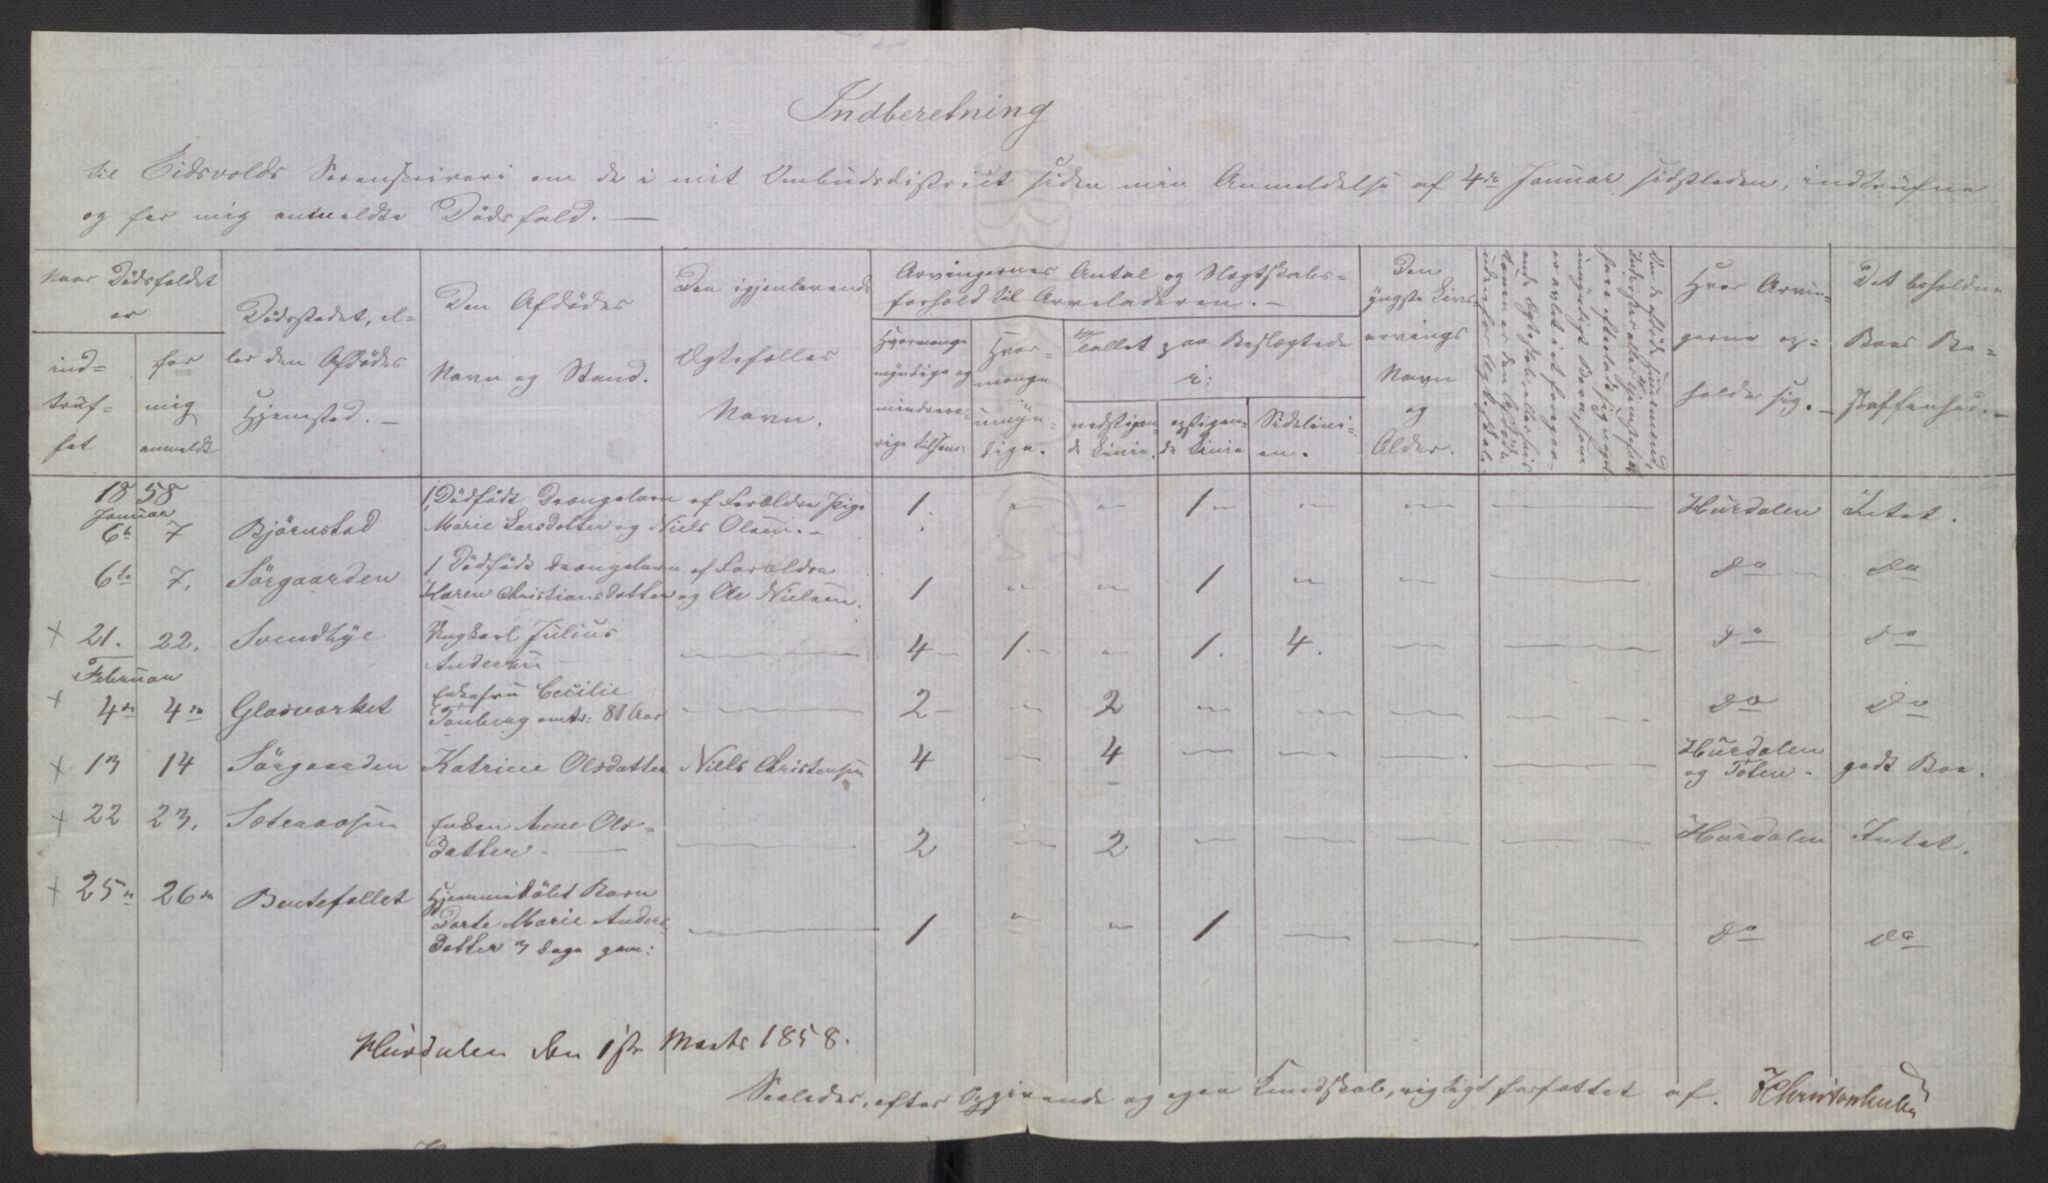 Indberetning
til Eidsvolds Sorenskriveri om de i mit Ombudsdistrict siden min Anmeldelse af 4de Januar sidstleden, indtrufne
og for mig anmeldte Dødsfald. —
Naar Dødsfaldet
er
ind=
truf=
fet
for
mig
anmeldt
Dødsstedet, el=
ler den Afdødes
Hjemsted. —
Den Afdødes
Navn og Stand.
Den igjenlevende
Ægtefælles
Navn.
Arvingernes Antal og Slægtskabs=
forhold til Arveladeren. —
Hvormange
myndige og
mindreaa=
rige tilsam:
Hvor=
mange
umyn=
dige.
Tallet paa Beslægtede
i:
nedstigen=
de Linie.
opstigen=
de Linie
Sidelini=
en.
Den
yngste Livs=
arvings
Navn
og
Alder.
Om de afdøde Fruentimmer,
Indersters eller Tjenestefolk
have efterladt sig noget
umyndigt Barn, som
er avlet i et foregaa=
ende Ægteskab, eller hvis
den afdøde
udenfor Ægteskab.
Hvor Arvin=
gerne op=
holde sig. —
Det beholdne
Boes Be=
skaffenhed. —
18 58
Januar
6te 7 Bjørnstad 1 Dødfødt Drengebarn af Forældre Pige
Marie Larsdatter og Niels Olsen. — 1. " " 1 " " " — Hurdalen Intet.
6te 7. Sørgaarden 1 Dødfødt Drengebarn af Forældre
Karen Christiansdatter og Ole Nielsen. 1 " " 1 " — — do do
+ 21. 22. Svendbye Ungkarl Julius
Andersen — 4 1 " 1. 4. — — do do
Februar
+ 4de 4de Glasværket Enkefru Cecilie
Tanberg omtr: 81 Aar — 2 " 2 " " — — do do
+ 13 14 Sørgaarden Katrine Olsdatter Niels Christensen 4 " 4 " — — — Hurdalen
og Toten. godt Boe.
+ 22 23. Sæteraasen Enken Anne Ols=
datter — — 2 " 2 " — — — Hurdalen Intet.
+ 25de 26de Bentefallet Hjemmedøbt Barn
Dorte Marie Anders
datter 3 Dage gam: — 1 " " 1 — — — do do
Hurdalen den 1ste Marts 1858.
Saaledes, efter Opgivende og egen Kundskab, rigtigt forfattet af.